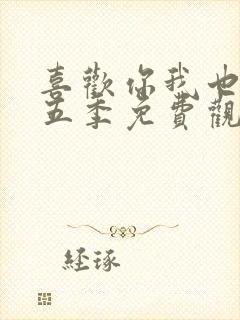 喜歡你我也
五季免費觀
経琢